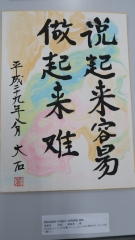 说起来容易
做起来难
平成二十九年八月 大石